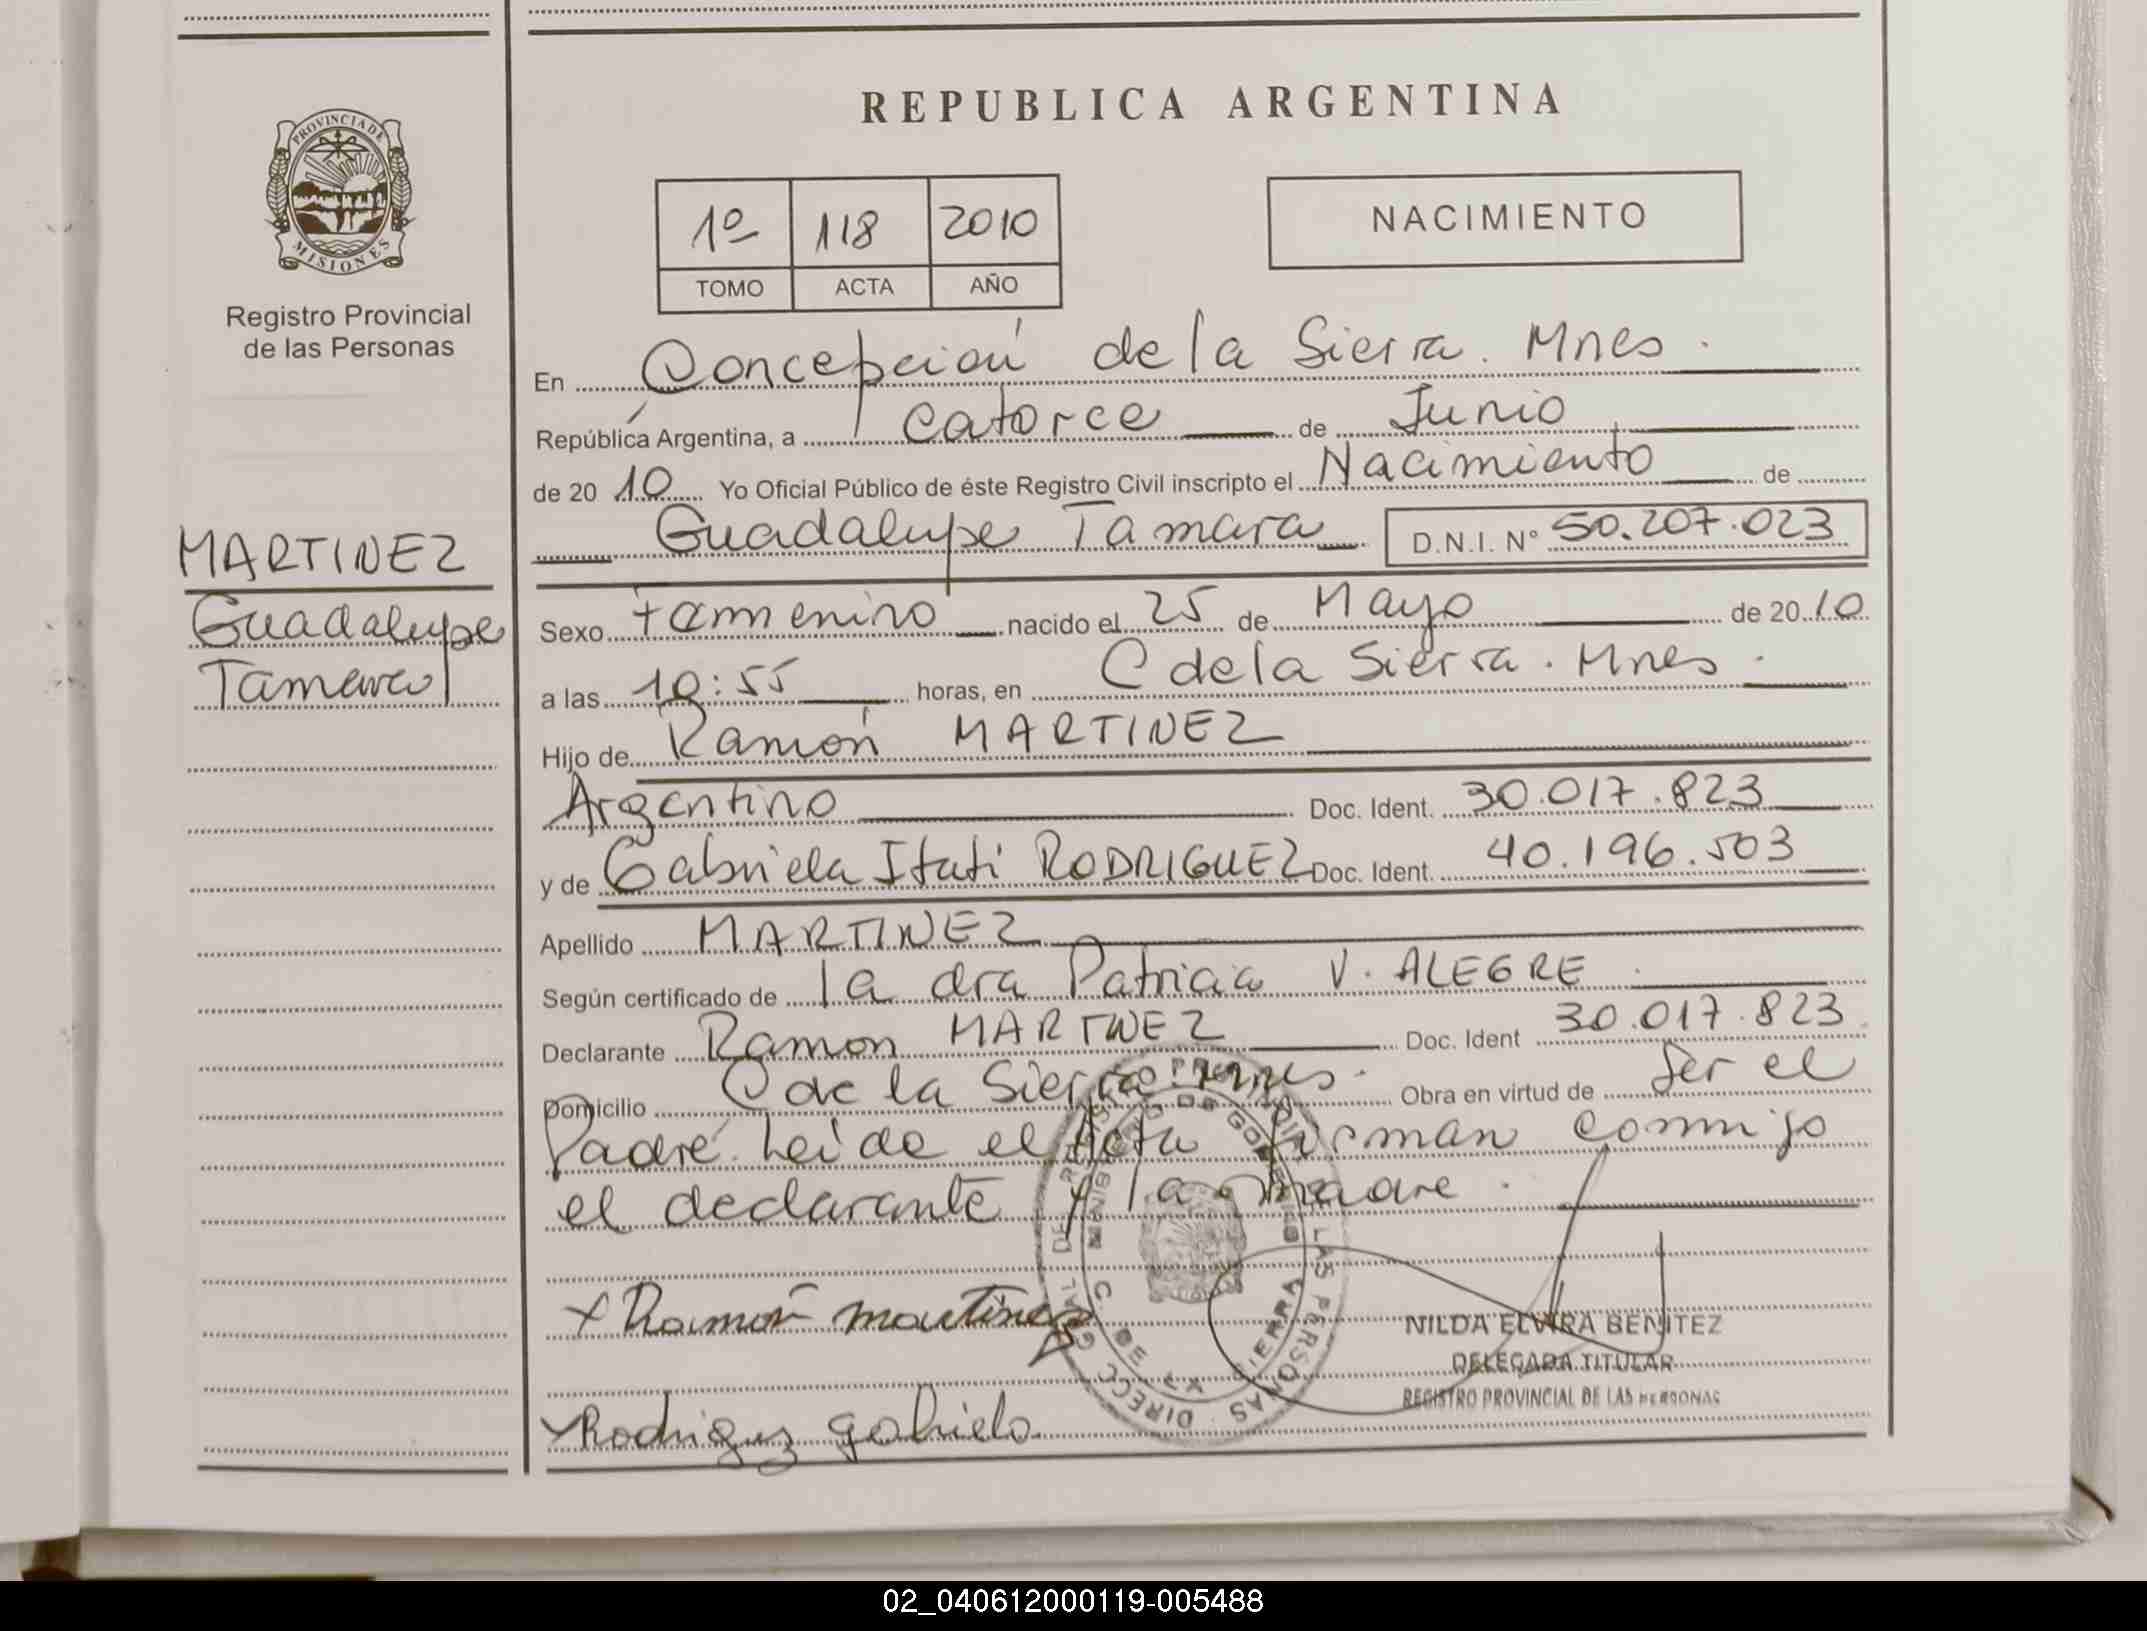 REPUBLICA ARGENTINA
PROVINCIA DE MISIONES
Registro Provincial
de las Personas
1º 118 2010
TOMO ACTA AÑO
NACIMIENTO
En Concepción de la Sierra. Mnes.
República Argentina, a catorce de Junio
de 2010 Yo Oficial Público de éste Registro Civil inscripto el Nacimiento de
Guadalupe Tamara D.N.I. N° 50.207.023
MARTINEZ
Guadalupe
Tamara
Sexo Femenino nacido el 25 de Mayo de 2010
a las 10:55 horas, en C de la Sierra. Mnes.
Hijo de Ramón MARTINEZ
Argentino Doc. Ident. 30.017.823
y de Gabriela Itati RODRIGUEZ Doc. Ident. 40.196.503
Apellido MARTINEZ
Según certificado de la dra Patricia V. ALEGRE.
Declarante Ramon MARTINEZ Doc. Ident 30.017.823
Domicilio C de la Sierra. Mnes. Obra en virtud de Ser el
Padre. Leida el Acta firman conmigo
el declarante y la madre.
x Ramón martinez
NILDA ELVIRA BENITEZ
DELEGADA TITULAR
REGISTRO PROVINCIAL DE LAS PERSONAS
x Rodriguez gabriela
02_040612000119-005488